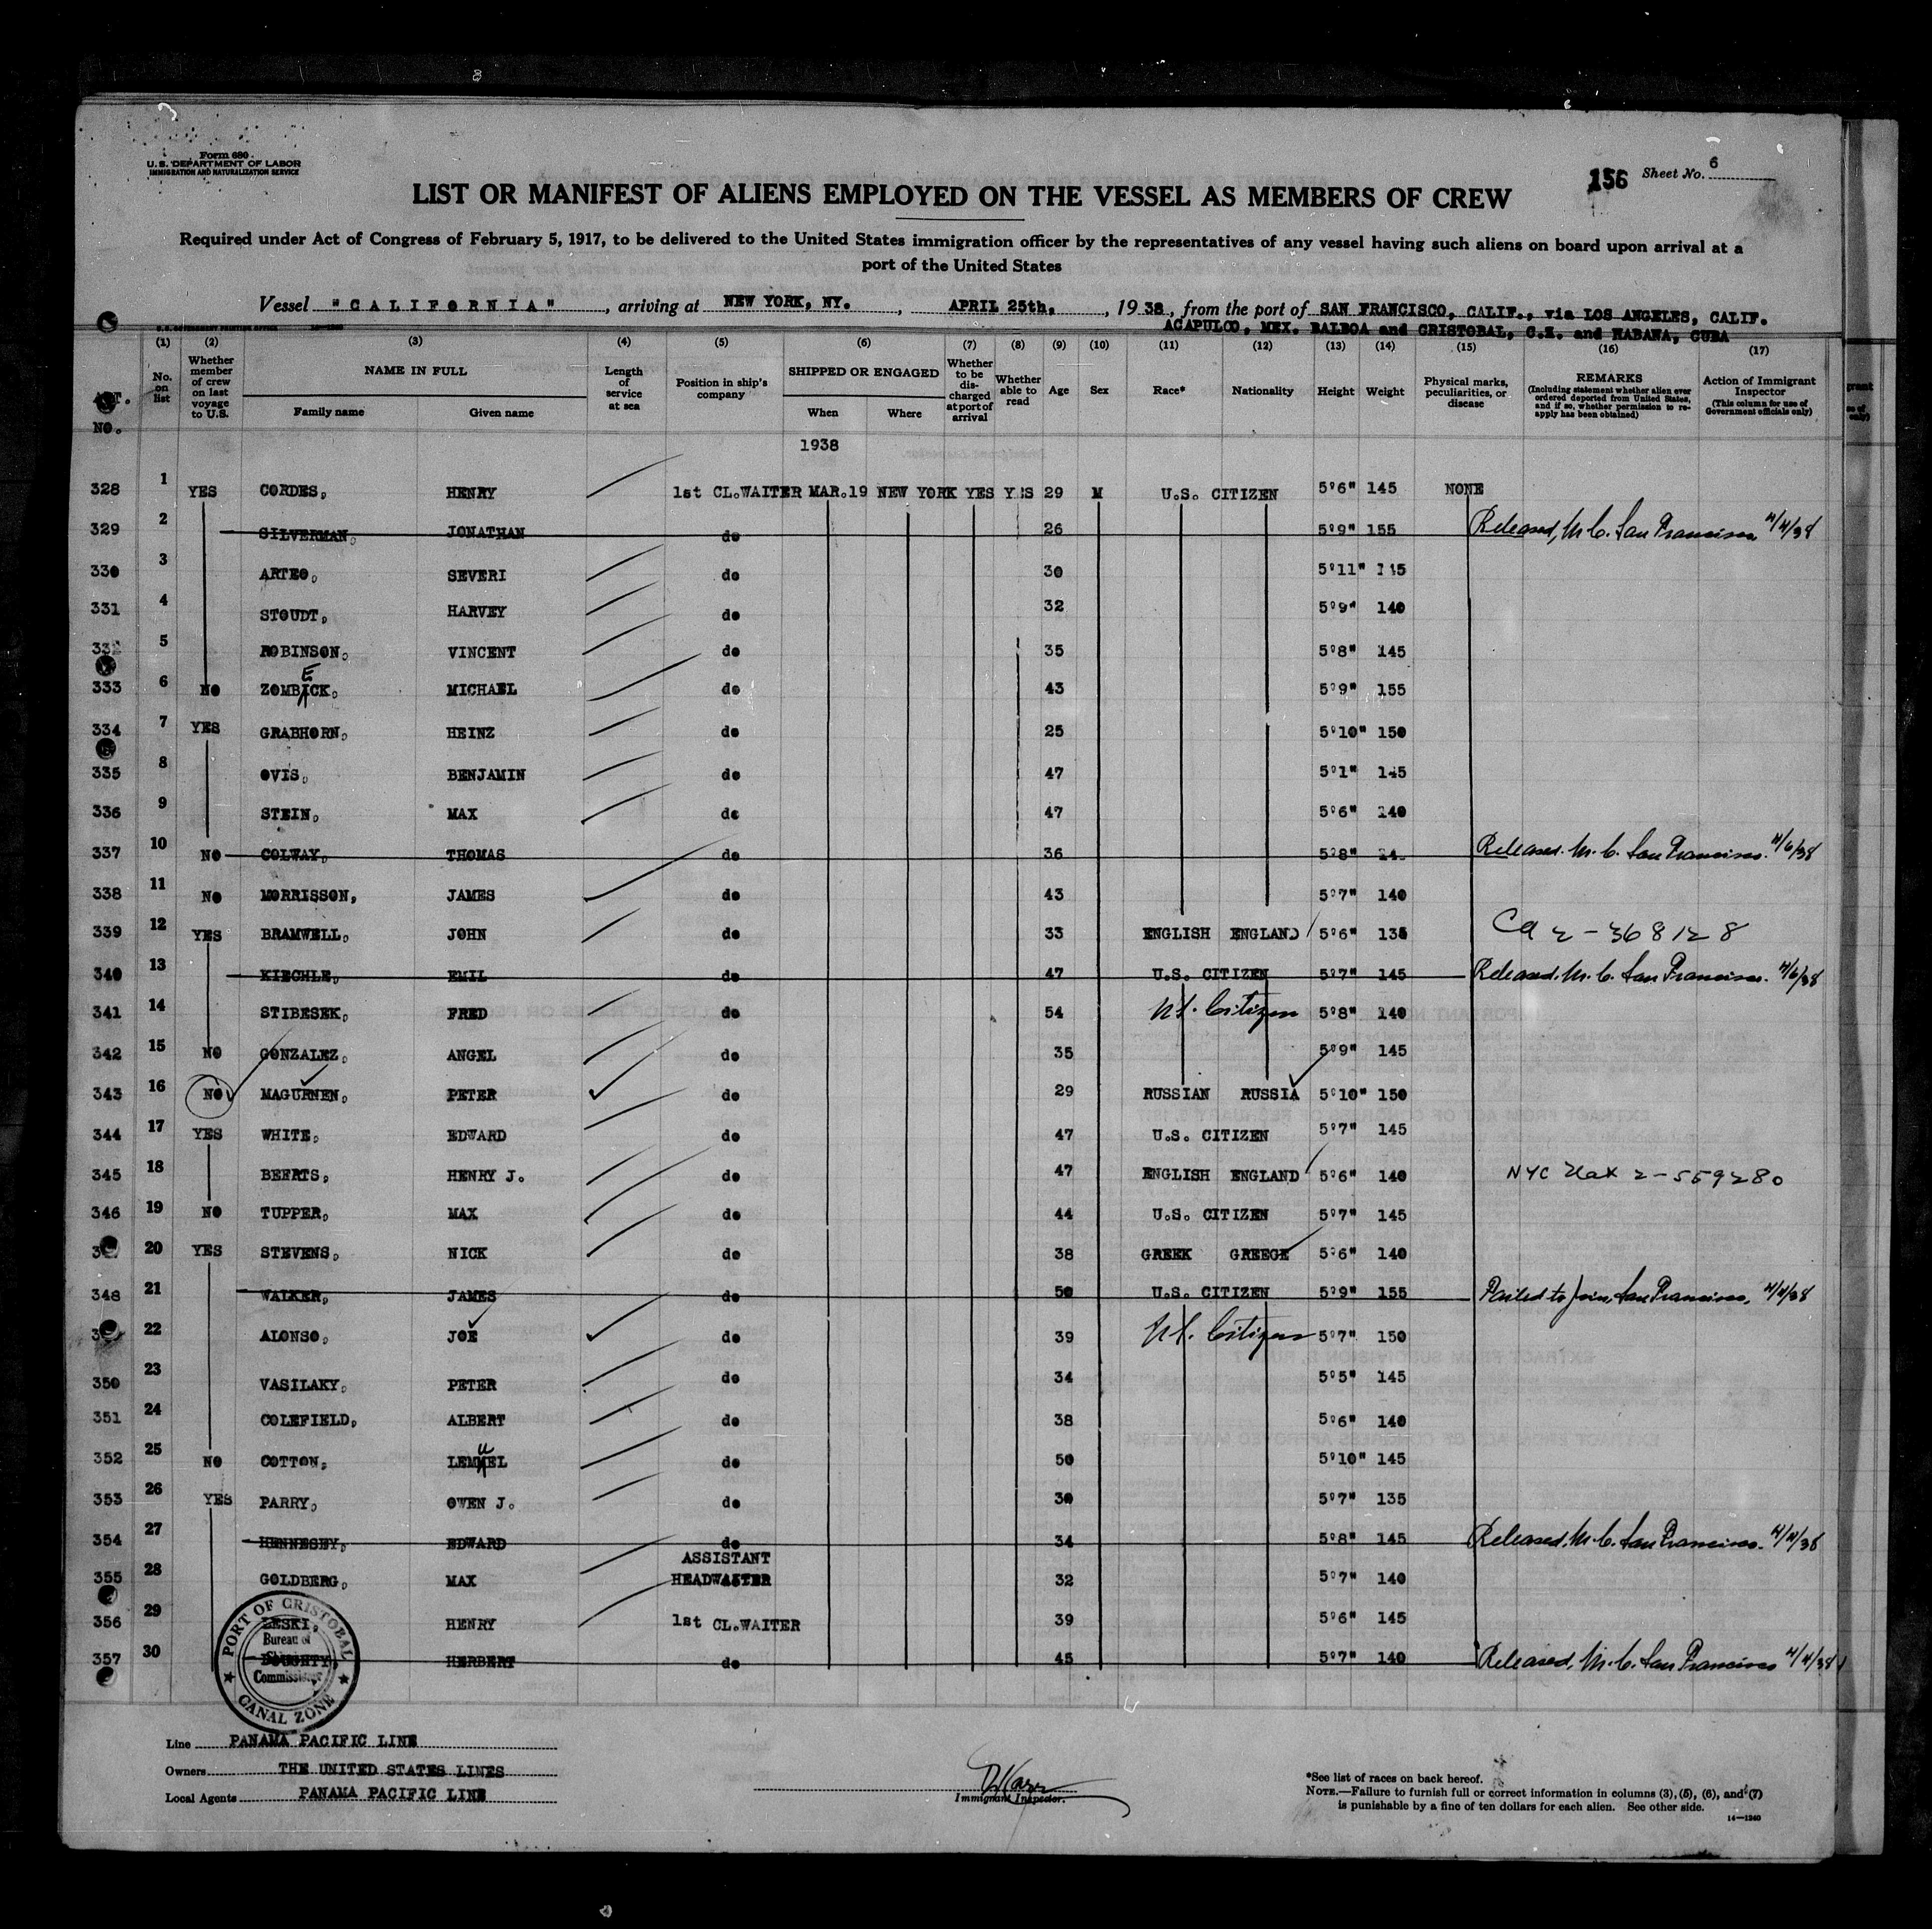 Form 680
U. S. DEPARTMENT OF LABOR
IMMIGRATION AND NATURALIZATION SERVICE
156 Sheet No. 6
LIST OR MANIFEST OF ALIENS EMPLOYED ON THE VESSEL AS MEMBERS OF CREW
Required under Act of Congress of February 5, 1917, to be delivered to the United States immigration officer by the representatives of any vessel having such aliens on board upon arrival at a
port of the United States
Vessel "CALIFORNIA", arriving at NEW YORK, NY., APRIL 25th, 1938, from the port of SAN FRANCISCO, CALIF., via LOS ANGELES, CALIF.
ACAPULCO, MEX. BALBOA and CRISTOBAL, C.Z. and HABANA, CUBA
(1) (2) (3) (4) (5) (6) (7) (8) (9) (10) (11) (12) (13) (14) (15) (16) (17)
No. on list
Whether member of crew on last voyage to U.S.
NAME IN FULL
Family name Given name
Length of service at sea
Position in ship's company
SHIPPED OR ENGAGED
When Where
Whether to be discharged at port of arrival
Whether able to read
Age Sex Race* Nationality Height Weight
Physical marks, peculiarities, or disease
REMARKS
(Including statement whether alien ever ordered deported from United States, and if so, whether permission to reapply has been obtained)
Action of Immigrant Inspector
(This column for use of Government officials only)
NO.
1938
328 1 YES CORDES, HENRY 1st CL.WAITER MAR.19 NEW YORK YES YES 29 M U.S. CITIZEN 5'6" 145 NONE
329 2 SILVERMAN, JONATHAN do 26 5'9" 155 Released, M.C. San Francisco 4/4/38
330 3 ARTEO, SEVERI do 30 5'11" 145
331 4 STOUDT, HARVEY do 32 5'9" 140
332 5 ROBINSON, VINCENT do 35 5'8" 145
333 6 NO ZOMBECK, MICHAEL do 43 5'9" 155
334 7 YES GRABHORN, HEINZ do 25 5'10" 150
335 8 OVIS, BENJAMIN do 47 5'1" 145
336 9 STEIN, MAX do 47 5'6" 140
337 10 NO COLWAY, THOMAS do 36 5'8" Released. M.C. San Francisco. 4/6/38
338 11 NO MORRISSON, JAMES do 43 5'7" 140
339 12 YES BRAMWELL, JOHN do 33 ENGLISH ENGLAND 5'6" 135 Ca 2-368128
340 13 KIECHLE, EMIL do 47 U.S. CITIZEN 5'7" 145 Released. M.C. San Francisco. 4/6/38
341 14 STIBESEK, FRED do 54 U.S. Citizen 5'8" 140
342 15 NO GONZALEZ, ANGEL do 35 5'9" 145
343 16 NO MAGURNEN, PETER do 29 RUSSIAN RUSSIA 5'10" 150
344 17 YES WHITE, EDWARD do 47 U.S. CITIZEN 5'7" 145
345 18 BEERTS, HENRY J. do 47 ENGLISH ENGLAND 5'6" 140 NYC 2-559280
346 19 NO TUPPER, MAX do 44 U.S. CITIZEN 5'7" 145
20 YES STEVENS, NICK do 38 GREEK GREECE 5'6" 140
348 21 WALKER, JAMES do 50 U.S. CITIZEN 5'9" 155 Failed to join, San Francisco, 4/4/38
22 ALONSO, JOE do 39 U.S. Citizen 5'7" 150
350 23 VASILAKY, PETER do 34 5'5" 145
351 24 COLEFIELD, ALBERT do 38 5'6" 140
352 25 NO COTTON, LEMUEL do 50 5'10" 145
353 26 YES PARRY, OWEN J. do 30 5'7" 135
354 27 HENNESEY, EDWARD do 34 5'8" 145 Released. M.C. San Francisco. 4/4/38
355 28 GOLDBERG, MAX ASSISTANT HEADWAITER 32 5'7" 140
356 29 LESKI, HENRY 1st CL.WAITER 39 5'6" 145
357 30 DOUGHTY, HERBERT do 45 5'7" 140 Released. M.C. San Francisco 4/4/38
PORT OF CRISTOBAL
Bureau of
Commissioner
CANAL ZONE
Line PANAMA PACIFIC LINE
Owners THE UNITED STATES LINES
Local Agents PANAMA PACIFIC LINE
Immigrant Inspector.
*See list of races on back hereof.
NOTE.—Failure to furnish full or correct information in columns (3), (5), (6), and (7)
is punishable by a fine of ten dollars for each alien. See other side.
14—1240